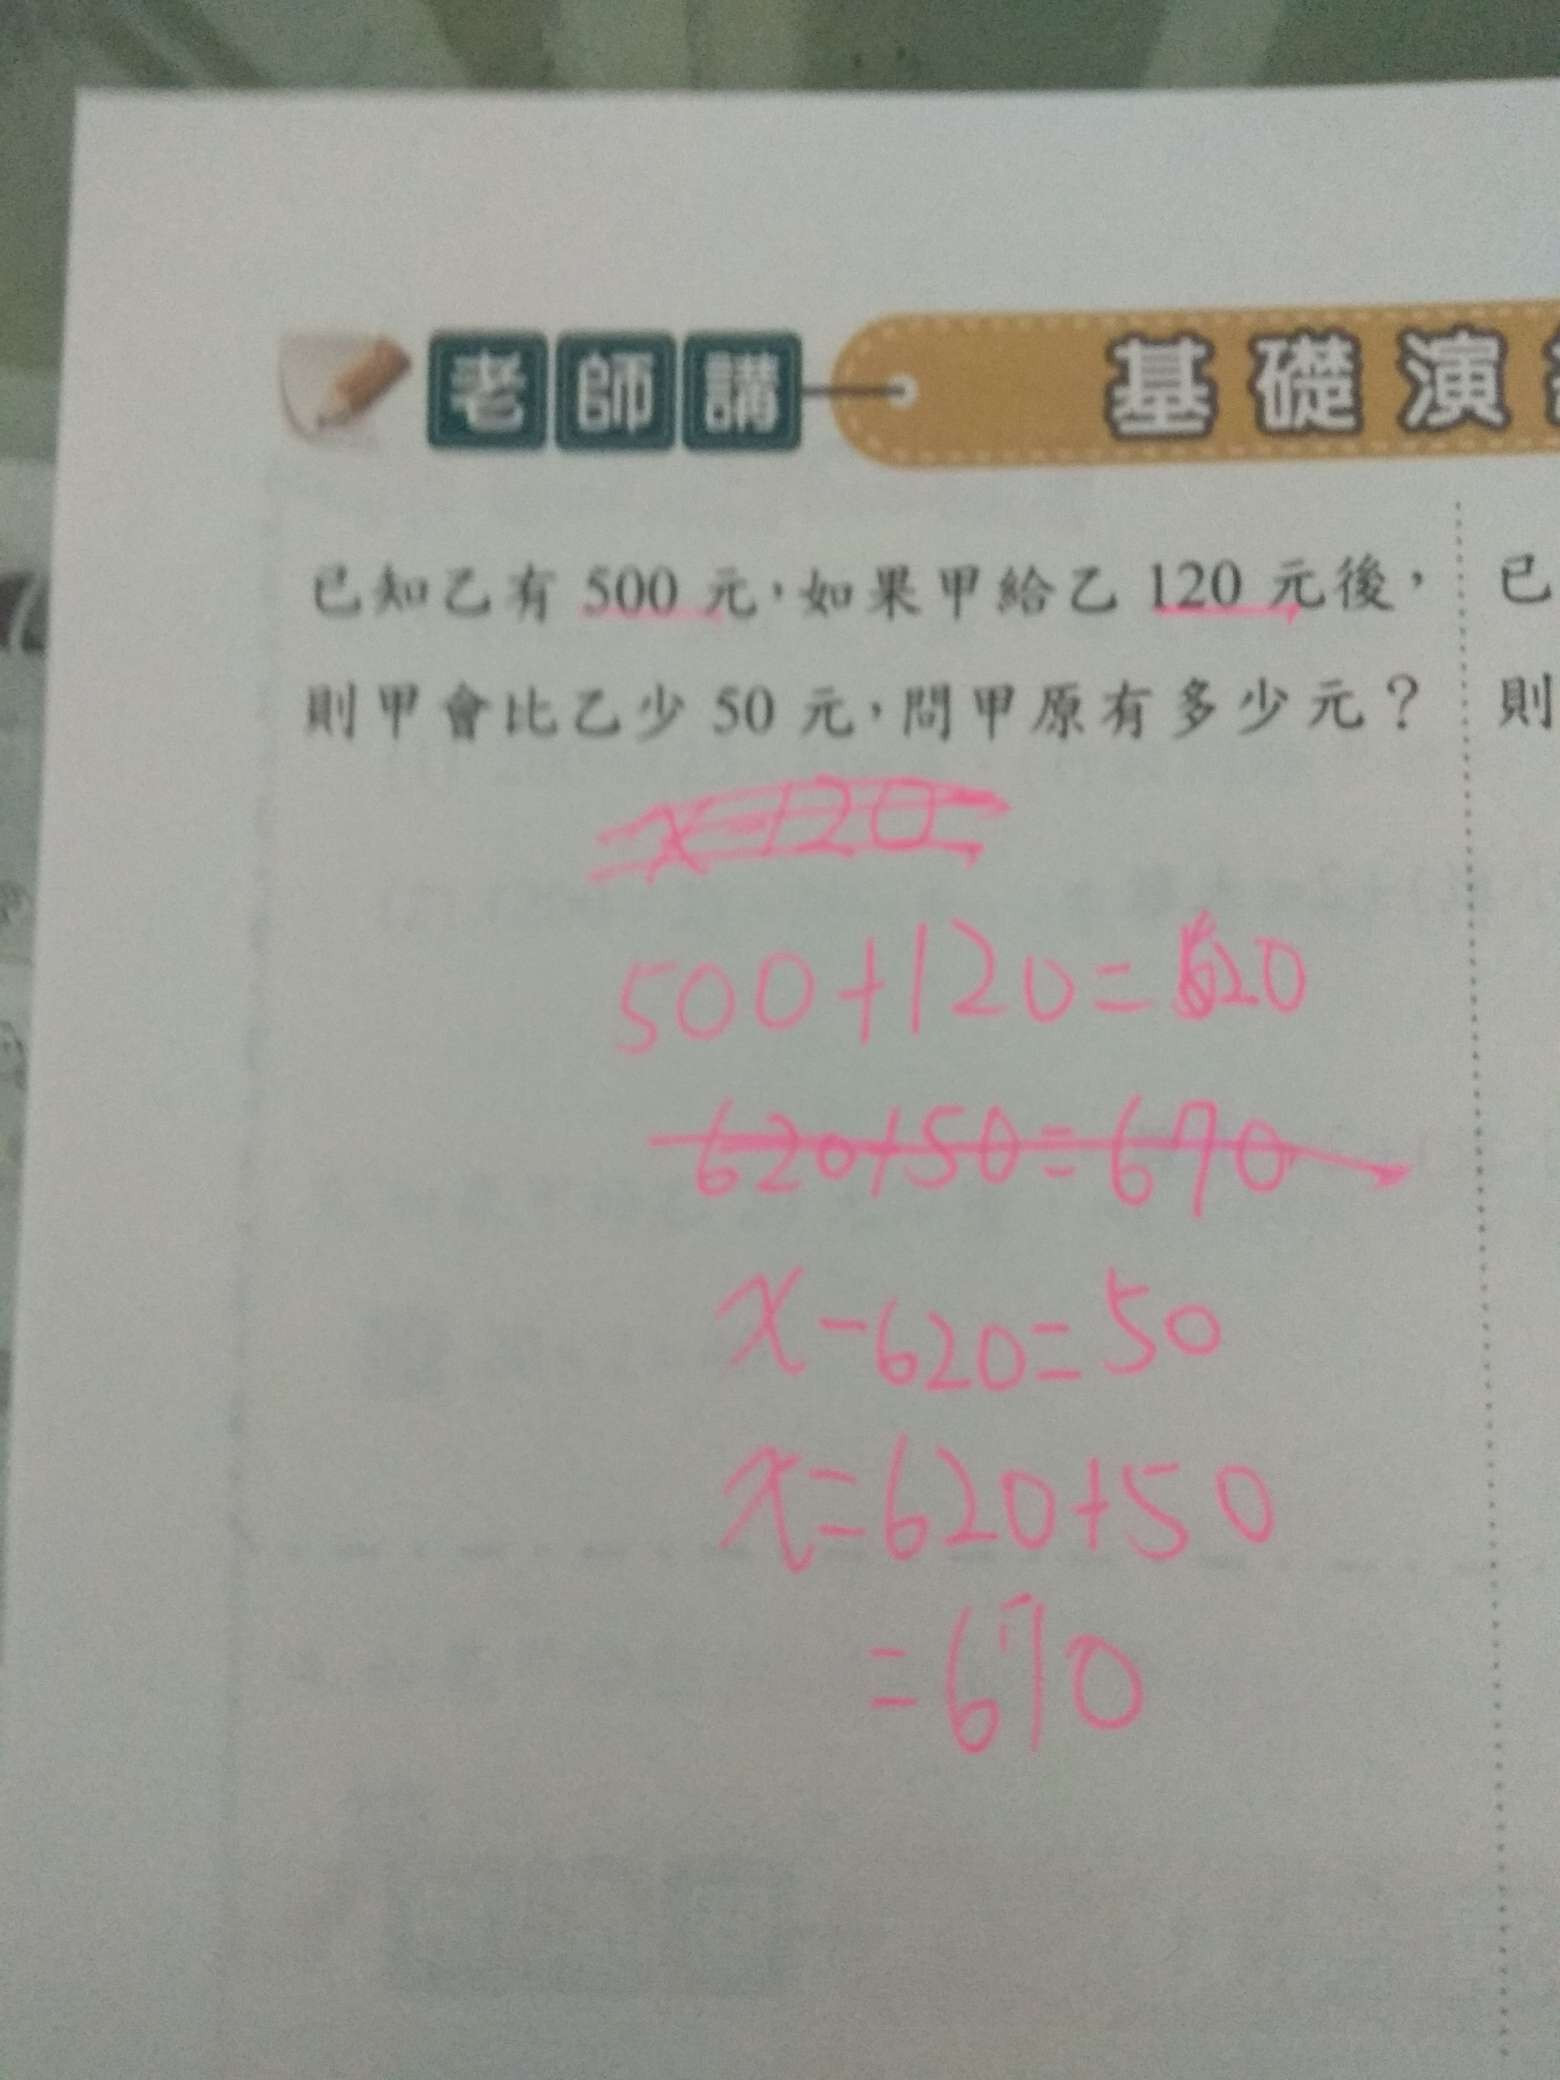 老師講
基礎演
已知乙有 500 元，如果甲給乙 120 元後，
則甲會比乙少 50 元，問甲原有多少元？
已
則
x-120
500+120=620
620+50=670
x-620=50
x=620+50
=670